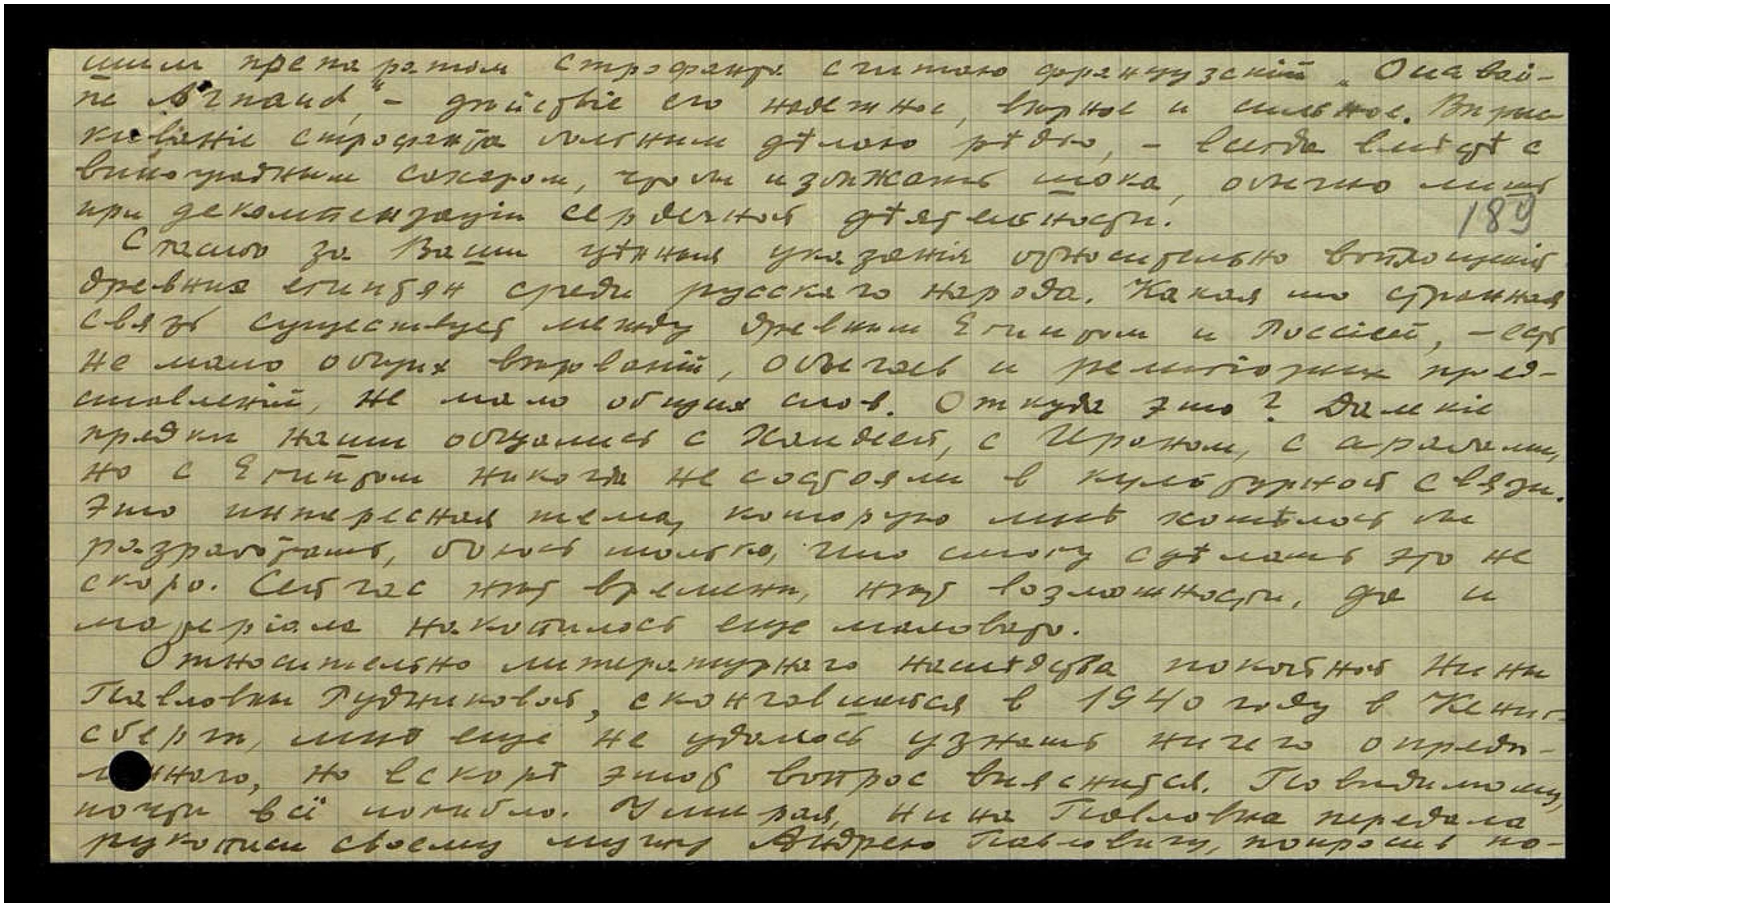 шим препаратом строфанта считаю французскiй „Ouabaï-
ne Arnaud“ – дѣйствiе его надежное, вѣрное и сильное. Впрыс-
киванiе строфанта больным дѣлаю рѣдко, – всегда вмѣстѣ с
виноградным сахаром, чтоб избѣжать шока, обычно лишь
при декомпенсацiи сердечной дѣятельности.
189
Спасибо за Ваши цѣнныя указанiя относительно воплощенiй
древних египтян среди русскаго народа. Какая то странная
связь существует между древним Египтом и Россiей, – есть
не мало общих вѣрованiй, обычаев и религiозных пред-
ставленiй, не мало общих слов. Откуда это? Далекiе
предки наши общались с Халдеей, с Ираном, с арабами,
но с Египтом никогда не состояли в культурной связи.
Это интересная тема, которую мнѣ хотѣлось бы
разработать, боюсь только, что смогу сдѣлать это не
скоро. Сейчас нѣт времени, нѣт возможности, да и
матерiала накопилось еще маловато.
Относительно литературнаго наслѣдства покойной Нины
Павловны Рудниковой, скончавшейся в 1940 году в Кениг-
сбергѣ, мнѣ еще не удалось узнать ничего опредѣ-
леннаго, но вскорѣ этот вопрос выяснится. Повидимому,
почти всё погибло. Умирая, Нина Павловна передала
рукописи своему мужу Андрею Павловичу, попросив по-